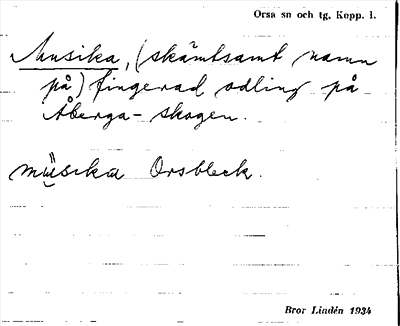 Orsa sn och tg. Kopp. l.
Musika, (skämtsamt namn
på) fingerad odling på
Åberga-skogen.
mü̱sıka Orsbleck.
Bror Lindén 1934